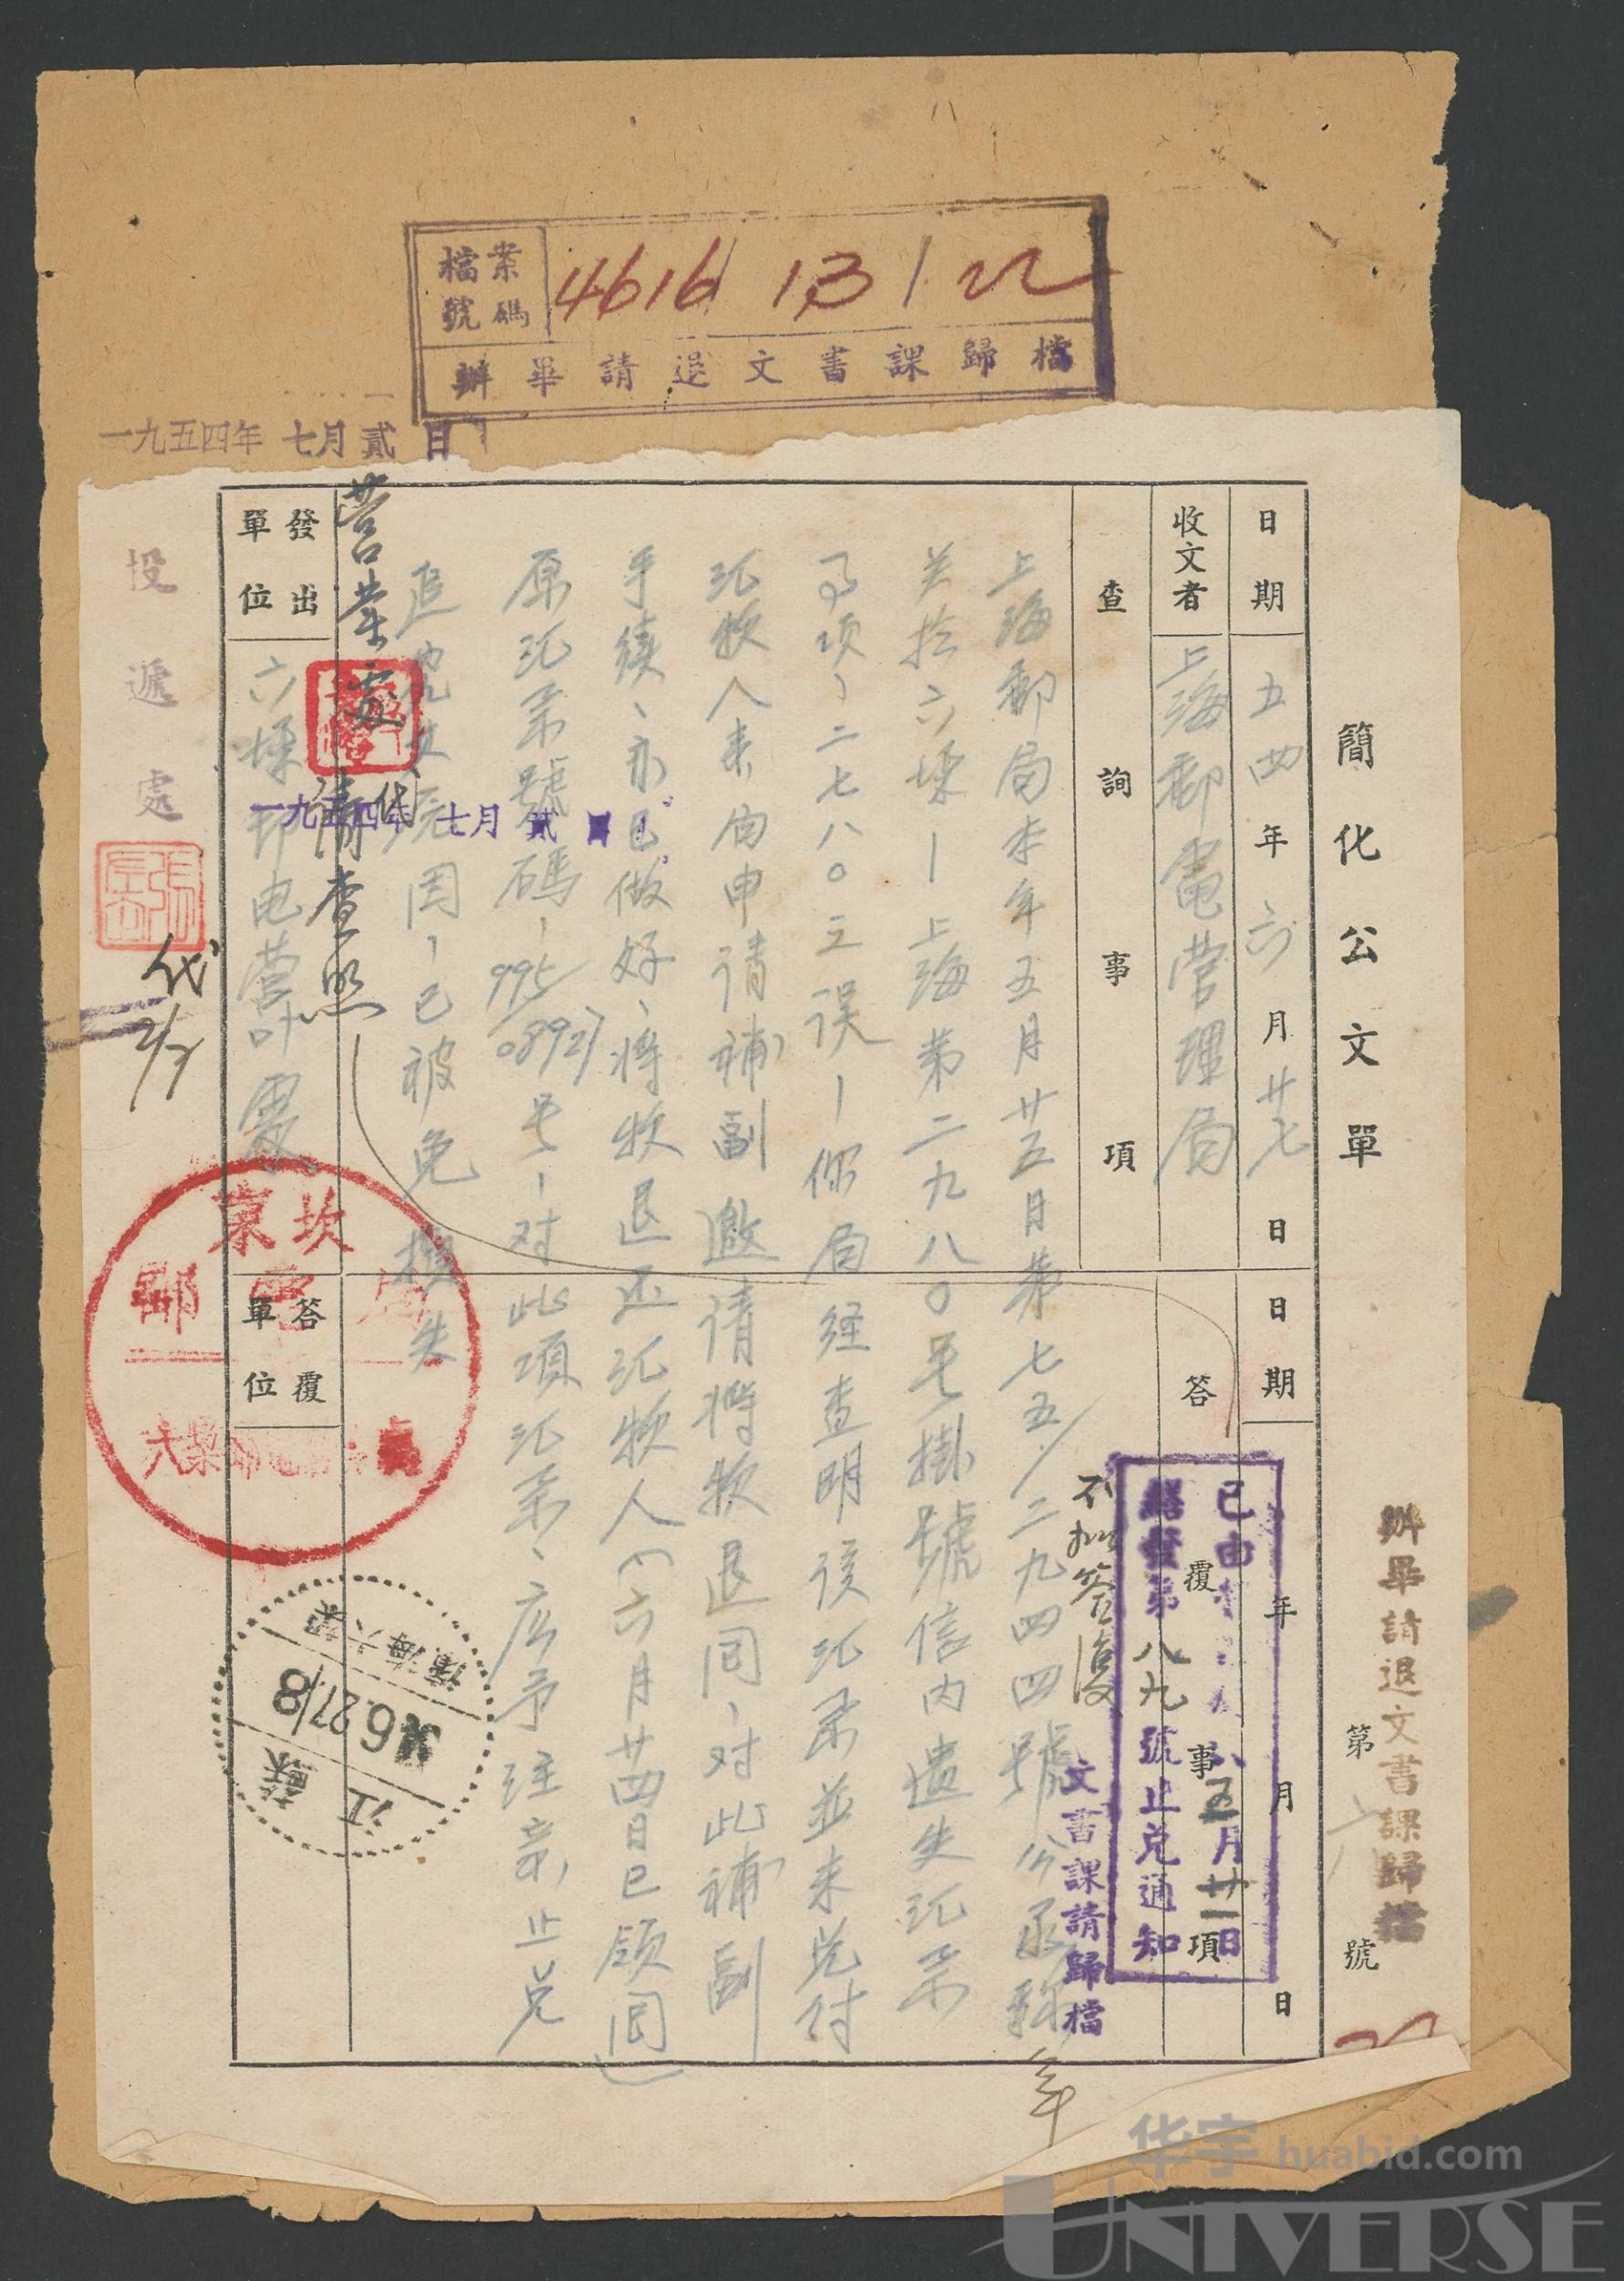 檔案
號碼
4616 13 1 22
辦畢請退文書課歸檔
一九五四年 七月貳日
簡化公文單
第 號
辦畢請退文書課歸檔
日期 五四年六月廿七日
收文者 上海郵電管理局
查詢事項
上海郵局本年五月廿五日第七五/二九四四號公函稱
关於六垛—上海第二九八〇号掛號信内遺失汇票
二七八〇
你局经查明该汇票並未兑付
汇款人来局申请補副邀请將款退回、对此補副
手續、亦已做好、将款退还汇款人(六月廿四日已領回)
原汇票號碼、995/08927号、对此項汇票、应予注意止兑
已被免損失
發出單位
六垛邮电营业處
營業處 請查照
代
一九五四年 七月貳日
投遞處
代
2/7
日期 年 月 日
答覆事項
已由
五月廿一日
第八九號止兑通知
不必答復
文書課請歸檔
答覆單位
江蘇
6.27/8
濱海六垛
华宇 huabid.com
UNIVERSE